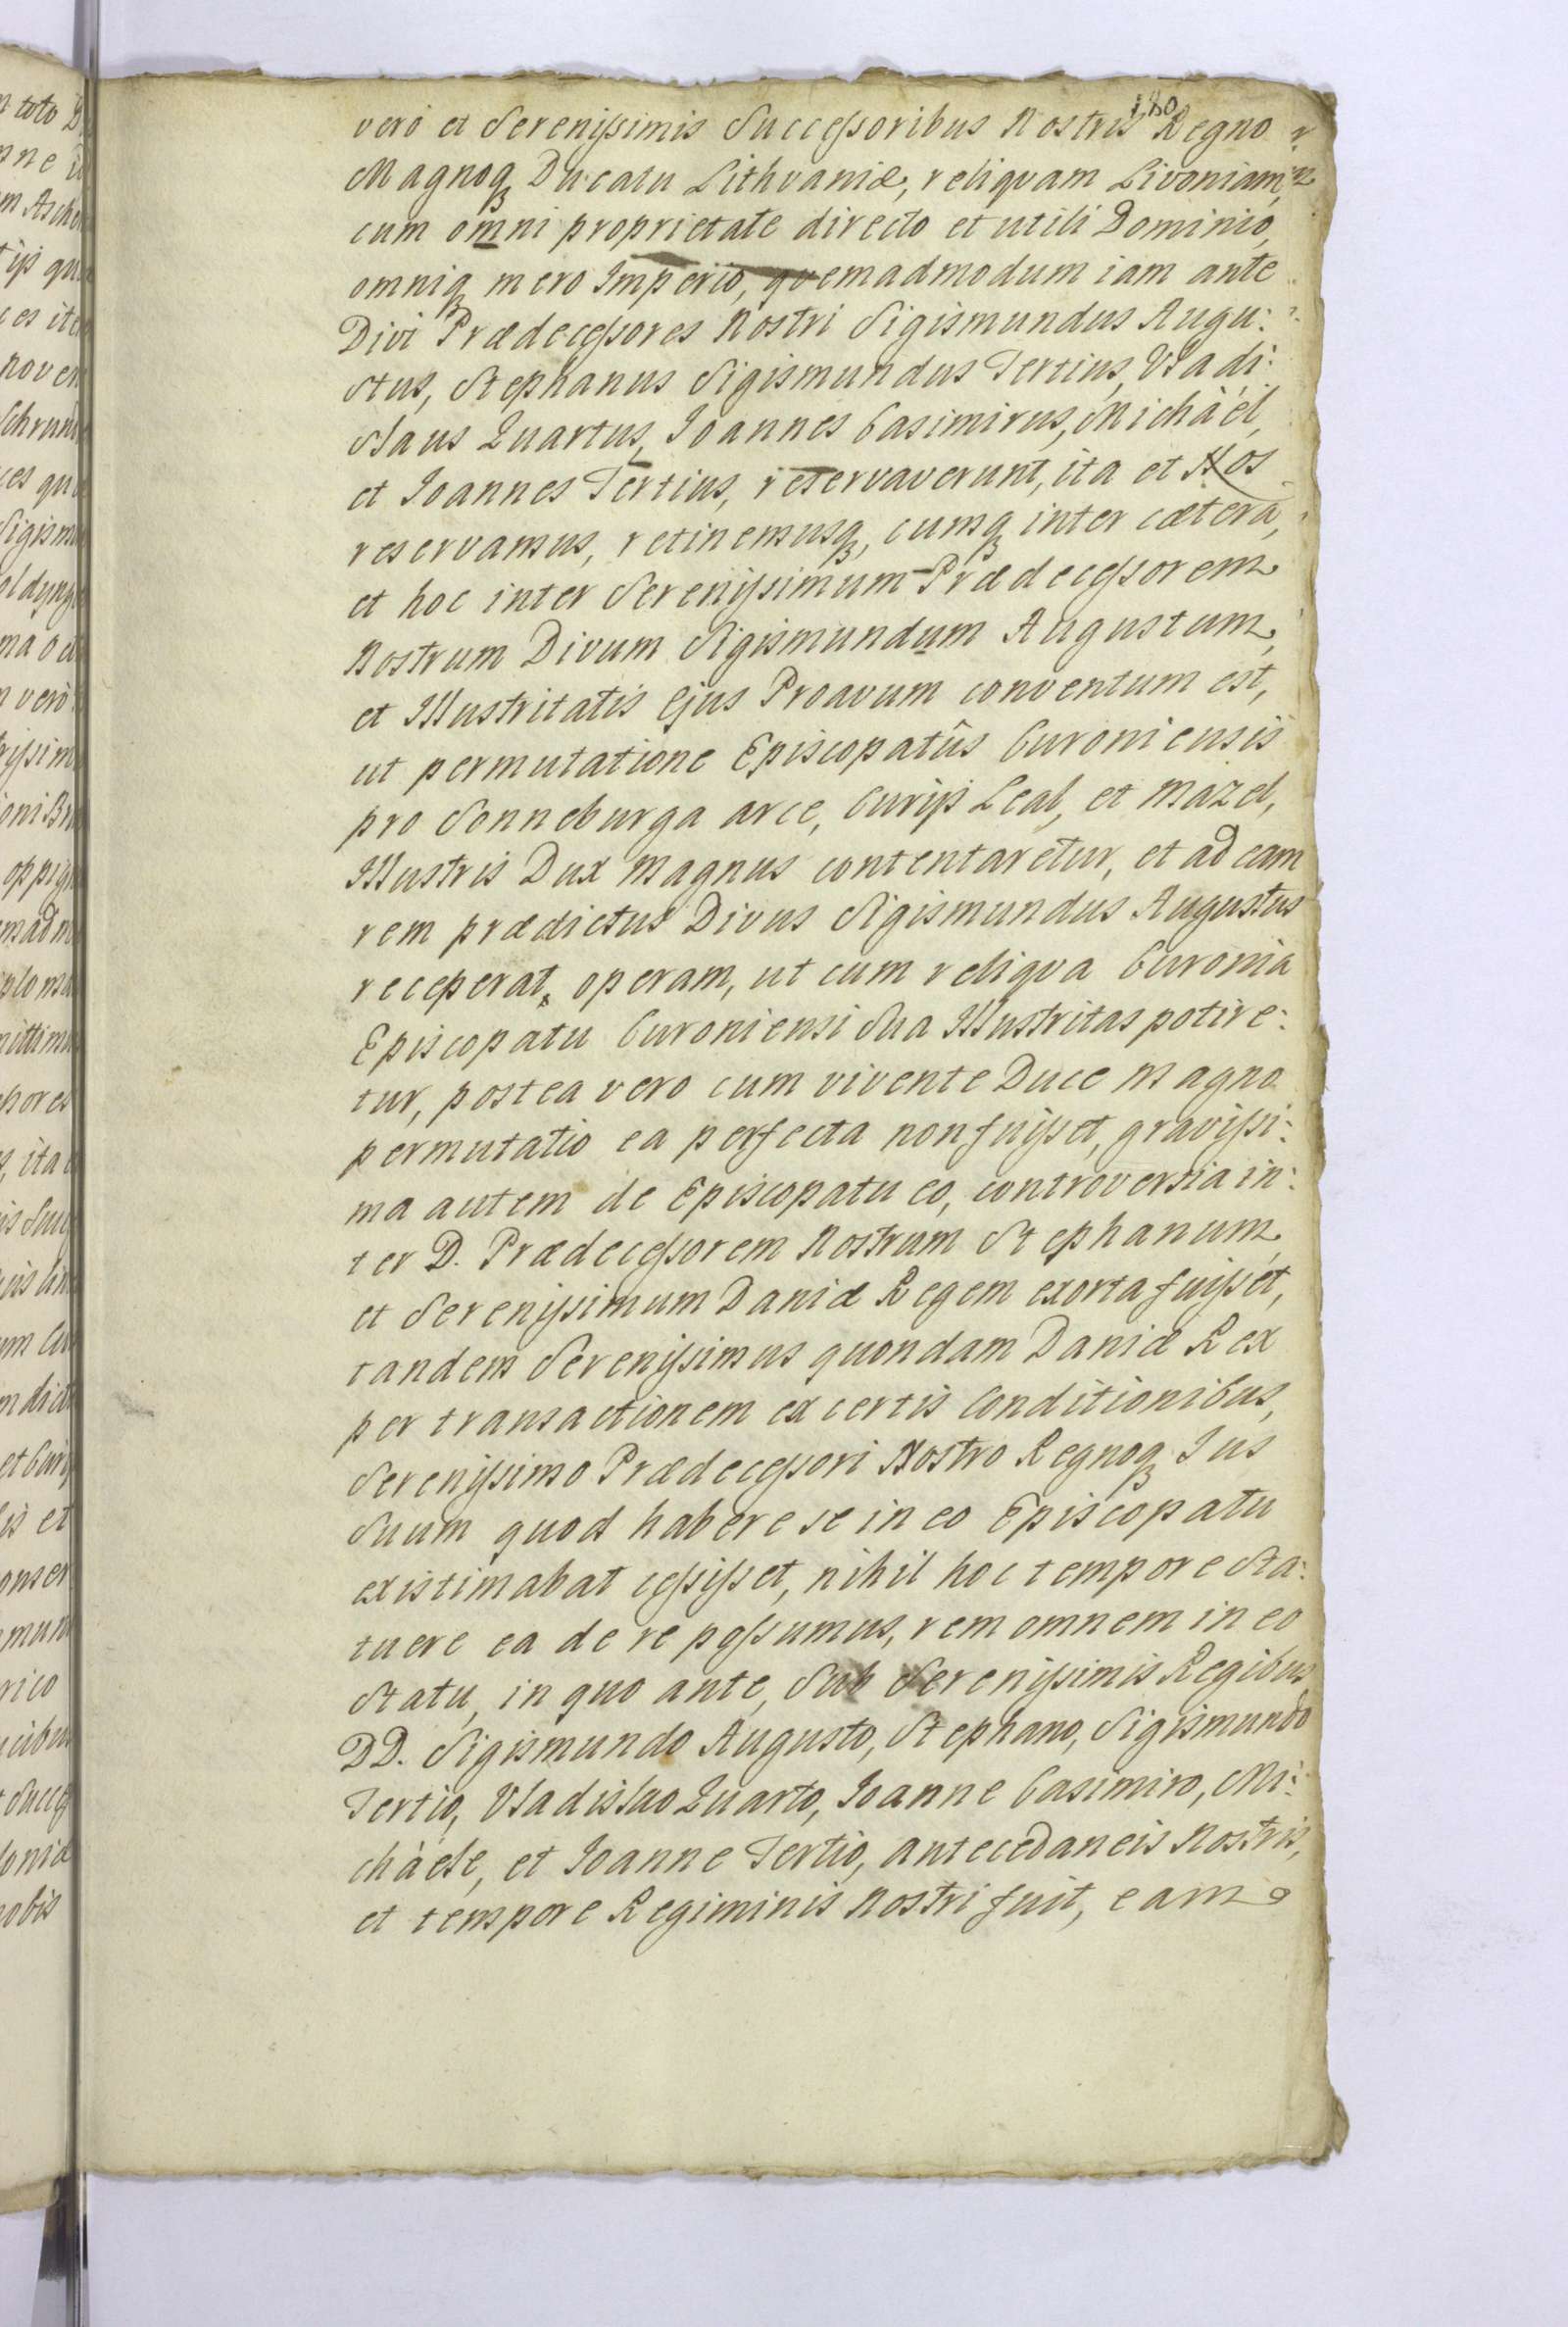 180
vero et Serenissimis Successoribus Nostris Regno
Magnoq Ducatu Lithvaniæ, reliqvam Livoniam,
cum omni proprietate directo et utili Dominio,
omniq mero Imperio, qvemadmodum iam ante
Divi Prædecessores Nostri Sigismundus Augu:
stus, Stephanus Sigismundus Tertius, Vladi:
slaus Quartus, Joannes Casimirus, Michàèl,
et Joannes Tertius, reservaverunt, ita et Nos
reservamus, retinemusq, cumq inter cætera,
et hoc inter Serenissimum Prædecessorem
Nostrum Divum Sigismundum Augustum,
et Illustritatis Ejus Proavum conventum est,
ut permutatione Episcopatûs Curoniensis
pro Sonneburga arce, Curijs Leal, et Mazel,
Illustris Dux Magnus contentaretur, et ad eam
rem prædictus Divus Sigismundus Augustus
receperat, operam, ut cum reliqva Curonia
Episcopatu Curoniensi Sua Illustritas potire:
tur, postea vero cum vivente Duce Magno
permutatio ea perfecta non fuisset, gravissi:
ma autem de Episcopatu eo, controversia in:
ter D. Prædecessorem Nostrum Stephanum,
et Serenissimum Daniæ Regem exorta fuisset,
tandem Serenissimus quondam Daniæ Rex
per transactionem ex certis Conditionibus,
Serenissimo Prædecessori Nostro Regnoq Jus
Suum quod habere se in eo Episcopatu
existimabat cessisset, nihil hoc tempore sta:
tuere ea de re possumus, rem omnem in eo
statu, in quo ante, Sub Serenissimis Regibus
DD. Sigismundo Augusto, Stephano, Sigismundo
Tertio, Vladislao Quarto, Joanne Casimiro, Mi:
chàele, et Joanne Tertio, antecedaneis Nostris,
et tempore Regiminis Nostri fuit, eam